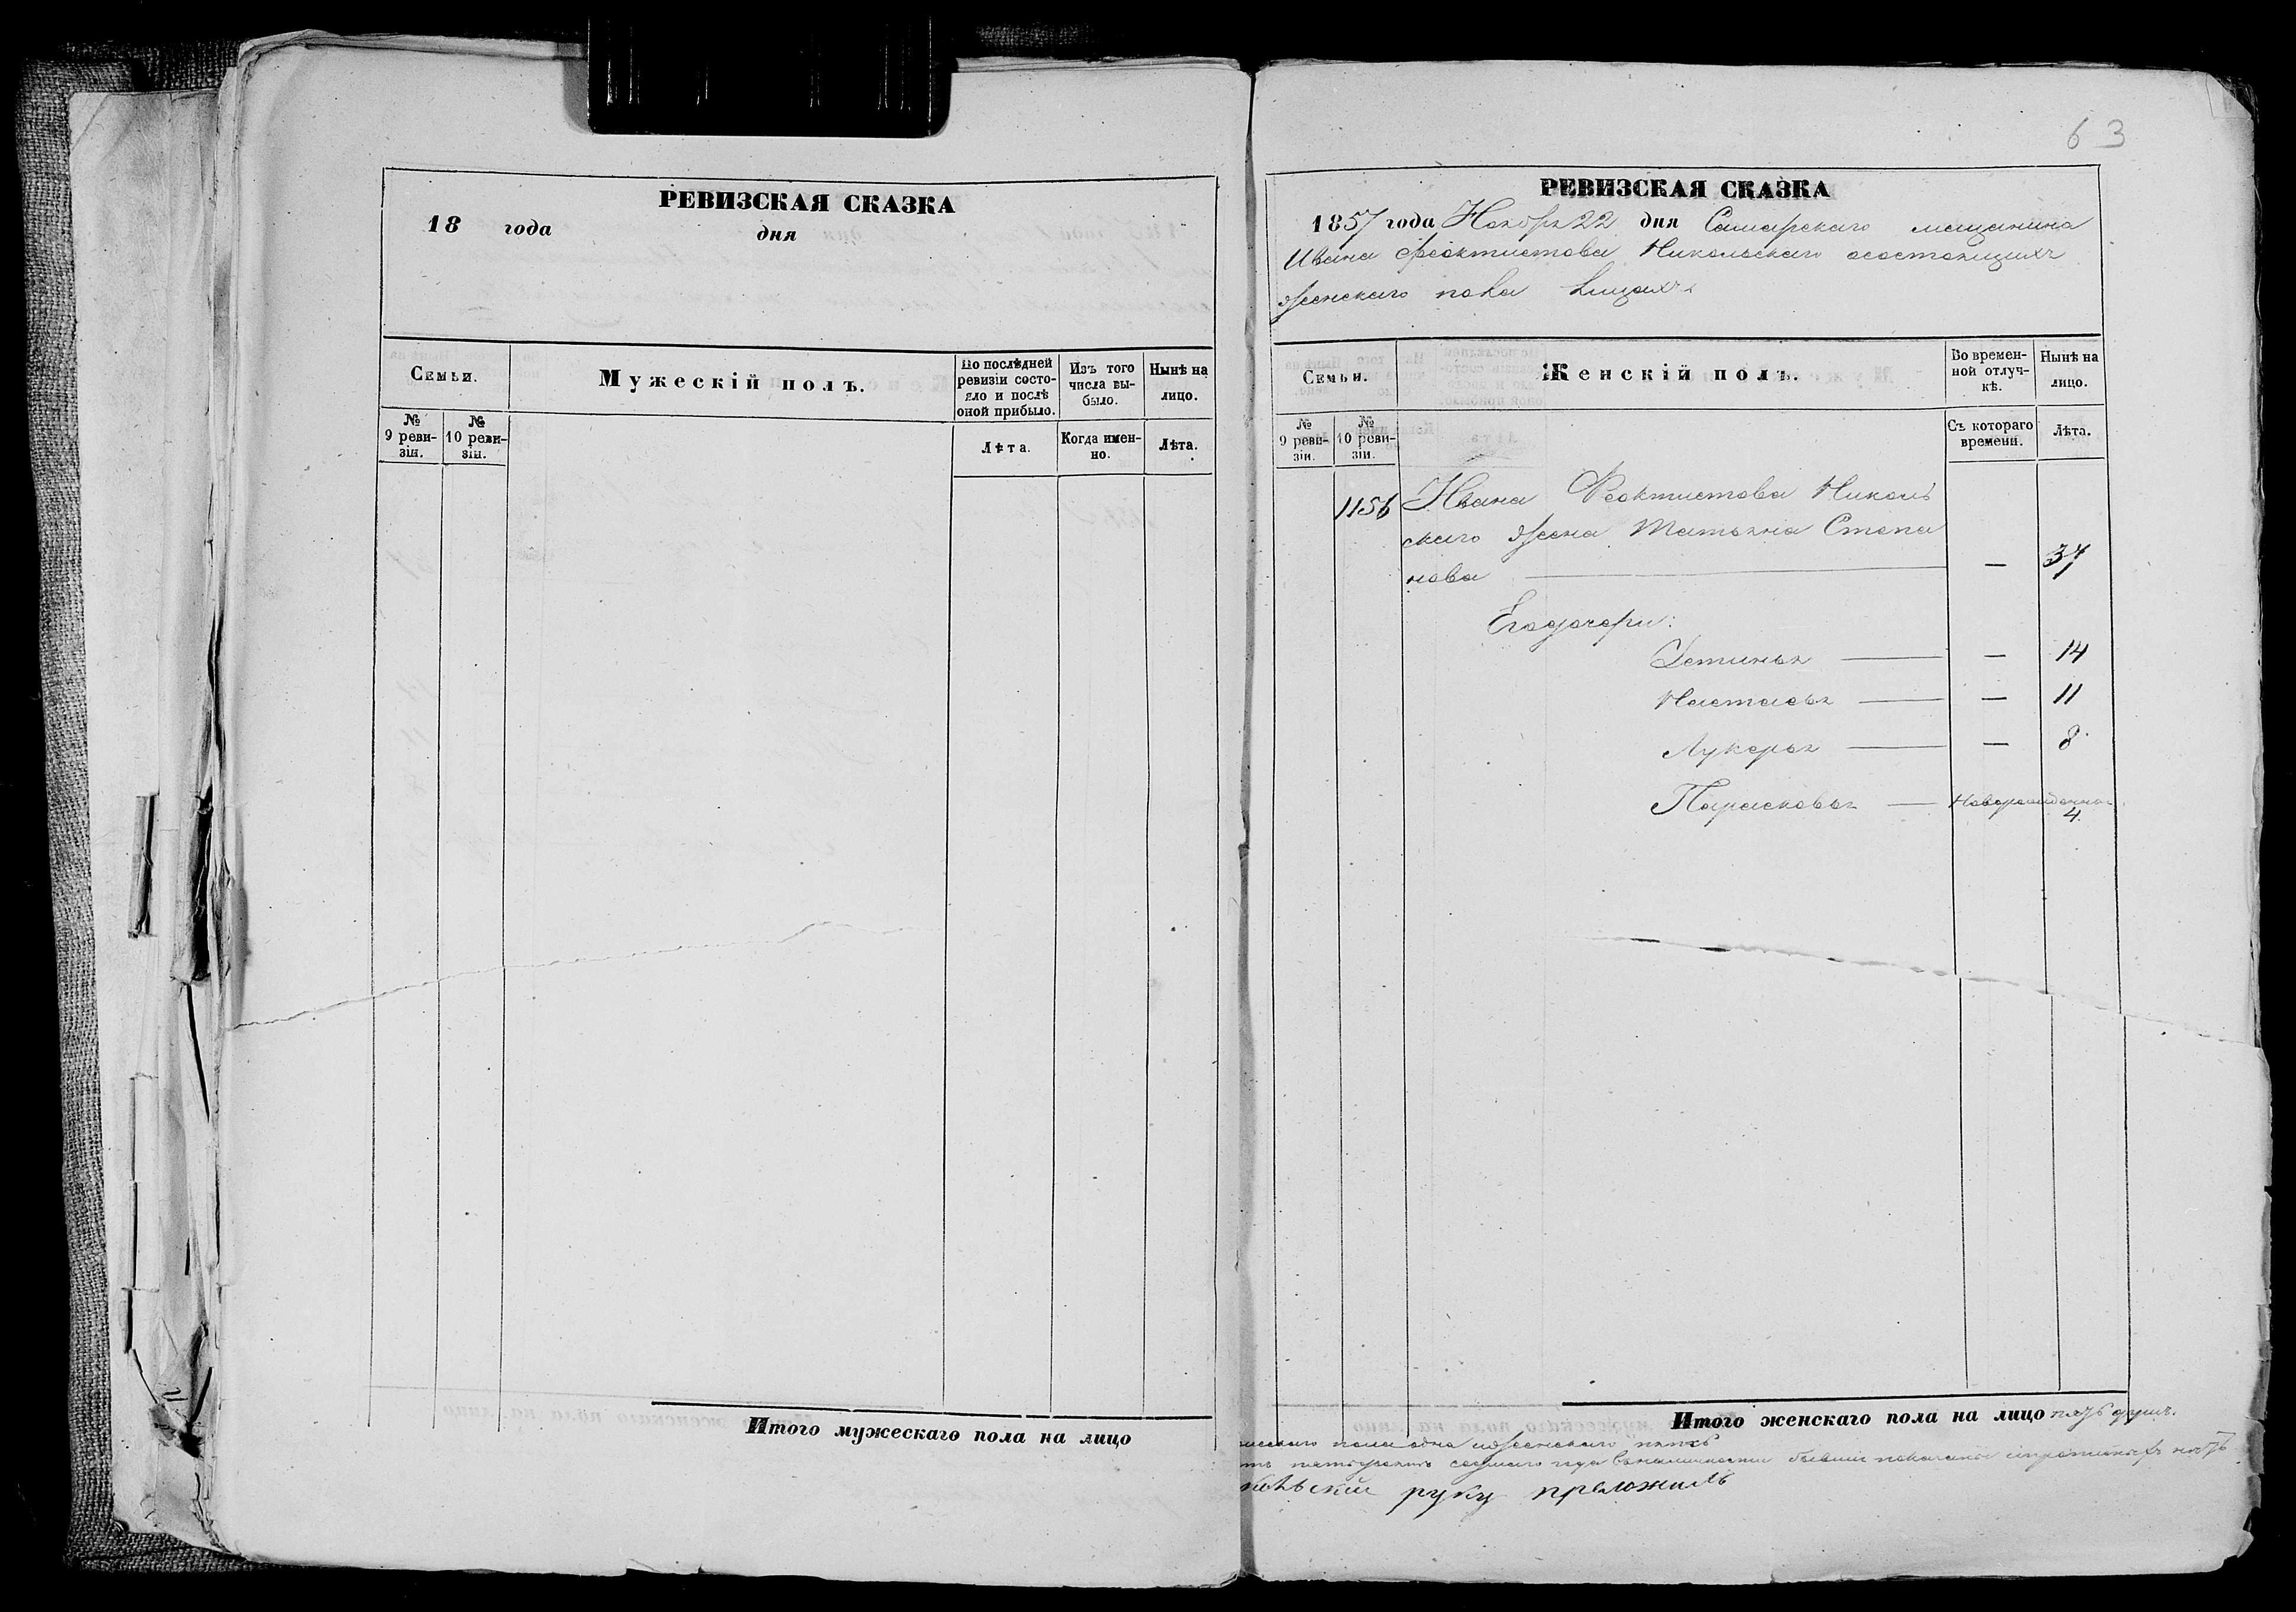 РЕВИЗСКАЯ СКАЗКА
18 года дня
Семьи.
Мужескій полъ.
По послѣдней ревизіи состояло и послѣ оной прибыло.
Изъ того числа выбыло.
Нынѣ на лицо.
№ 9 ревизіи.
№ 10 ревизіи.
Лѣта.
Когда именно.
Лѣта.
Итого мужескаго пола на лицо
63
РЕВИЗСКАЯ СКАЗКА
1857 года Ноября 22 дня Самарскаго мещанина
Ивана Феоктистова Никольскаго осостоящихъ
женскаго пола лицахъ
Семьи.
Женскій полъ.
Во временной отлучкѣ.
Нынѣ на лицо.
№ 9 ревизіи.
№ 10 ревизіи.
Съ котораго времени.
Лѣта.
1156 Ивана Феоктистова Николь
скаго жена Татьяна Степа
нова — 37
Его дочери:
Устинья — 14
Настасья — 11
Лукерья — 8
Парасковья — Новорожденна
4
Итого женскаго пола на лицо пять душъ.
пола одна женскаго пять
года бывши
руку приложилъ